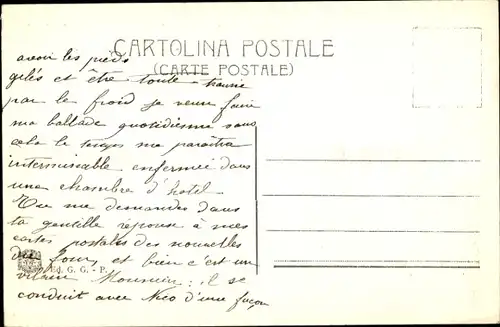 CARTOLINA POSTALE
(CARTE POSTALE)
avoir les pieds
gelés et être toute transie
par le froid je veux faire
ma ballade quotidienne sans
cela le temps me paraîtra
interminable enfermée dans
une chambre d'hotel.
Tu me demandes dans
ta gentille réponse à mes
cartes postales des nouvelles
de et bien c'est un
Ed. G. G. - P.
vilain Monsieur : il se
conduit avec Nico d'une façon